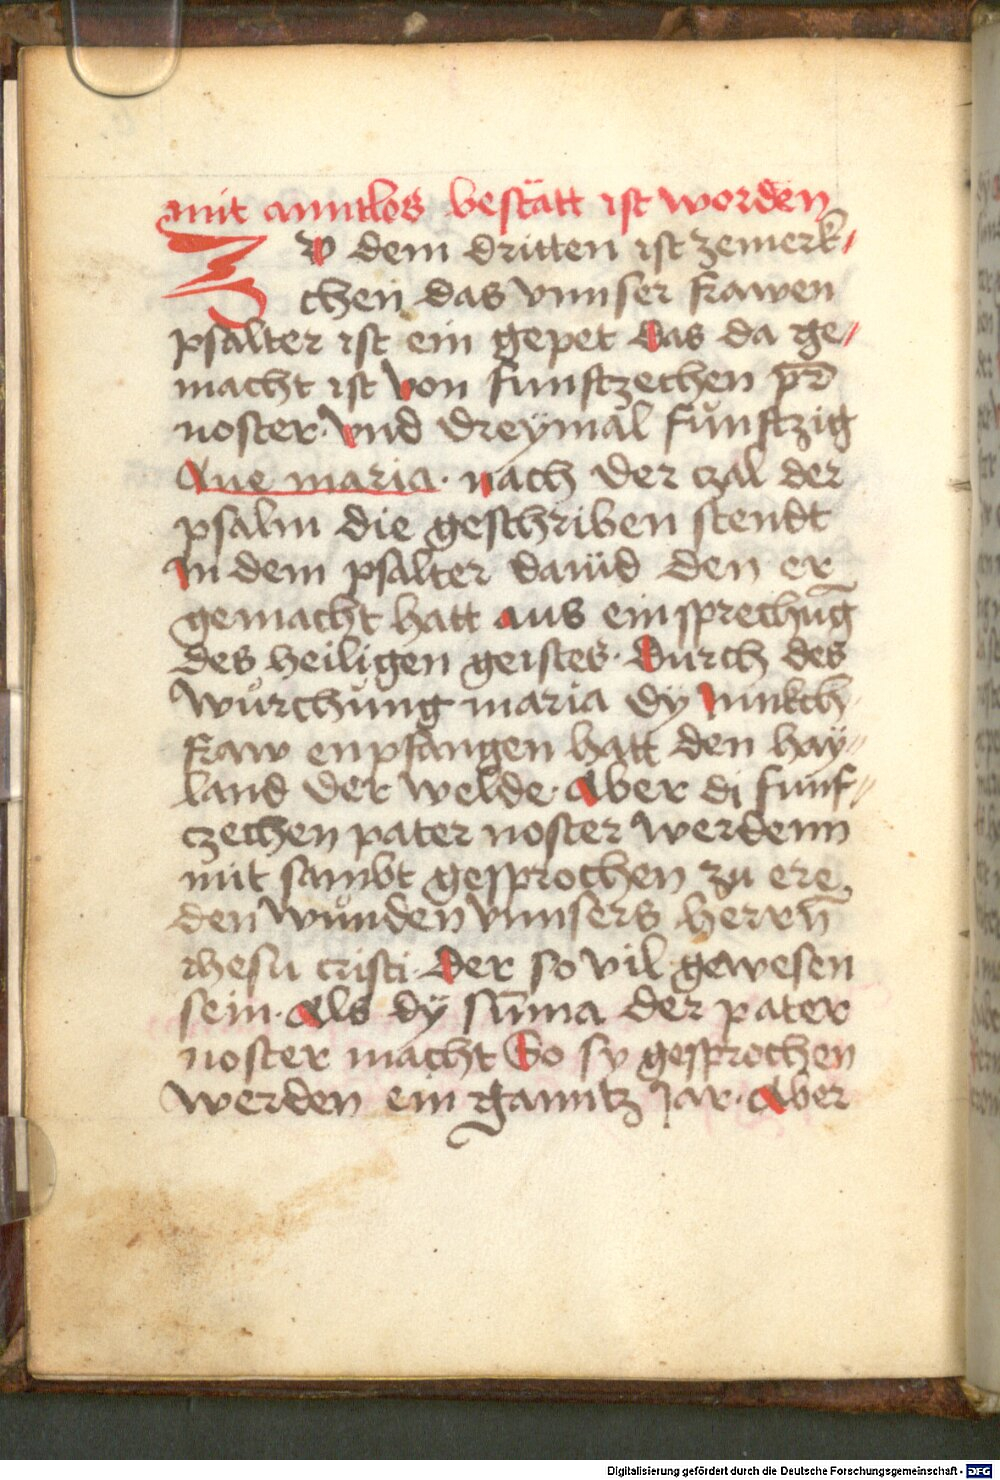 mit anntlos bestätt ist worden
Zw dem dritten ist zemerk-
chen das vnnser frawen
psalter ist ein gepet das da ge-
macht ist von funftzechen pr̄
noster· vnd dreymal fünftzig
Aue maria· nach der czal der
psalm die geschriben stendt
in dem psalter dauid den er
gemacht hatt aus einsprechūg
des heiligen geistes· durch des
würchüng maria dy iunkch-
fraw enpfangen hatt den hay-
land der welde· Aber di funf-
czechen pater noster werdenn
mit sambt gesprochen zu ere
den wunden vnnsers herrn̄
ihesu cristi· der so vil gewesen
sein· als dy sum̄a der pater
noster macht So sy gesprochen
werden ein ganntz Jar· Aber
Digitalisierung gefördert durch die Deutsche Forschungsgemeinschaft - DFG